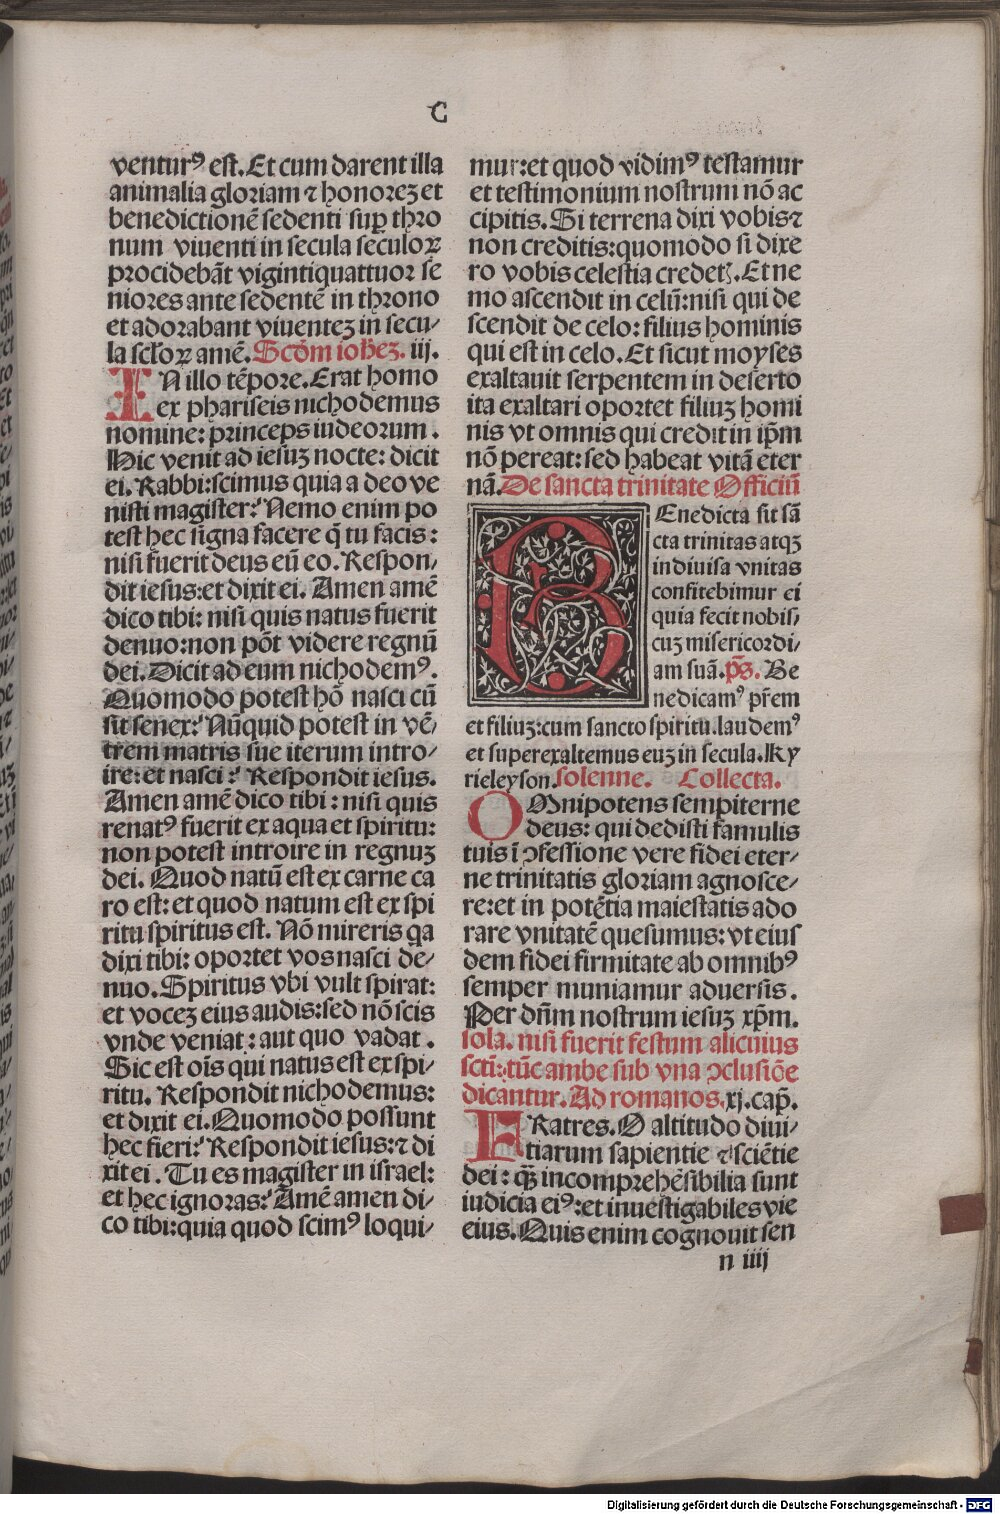 C
venturꝰ est. Et cum darent illa
animalia gloriam ⁊ honorez et
benedictionē sedenti suꝑ thro
num viuenti in secula seculoꝝ
procidebāt vigintiquattuor se
niores ante sedentē in throno
et adorabant viuentez in secu⸗
la scl'oꝝ amē. Scd'm ioh'ez. iij.
IN illo tēpore. Erat homo
ex phariseis nichodemus
nomine: princeps iudeorum.
Hic venit ad iesuz nocte: dicit
ei. Rabbi: scimus quia a deo ve
nisti magister: Nemo enim po
test hec signa facere q̄ tu facis:
nisi fuerit deus cū eo. Respon⸗
dit iesus: et dixit ei. Amen amē
dico tibi: nisi quis natus fuerit
denuo: non pōt videre regnū
dei. Dicit ad eum nichodemꝰ.
Quomodo potest hō nasci cū
sit senex? Nūquid potest in vē⸗
trem matris sue iterum intro⸗
ire: et nasci? Respondit iesus.
Amen amē dico tibi: nisi quis
renatꝰ fuerit ex aqua et spiritu:
non potest introire in regnuz
dei. Quod natū est ex carne ca
ro est: et quod natum est ex spi
ritu spiritus est. Nō mireris qa
dixi tibi: oportet vos nasci de⸗
nuo. Spiritus vbi vult spirat:
et vocez eius audis: sed nō scis
vnde veniat: aut quo vadat.
Sic est oīs qui natus est ex spi⸗
ritu. Respondit nichodemus:
et dixit ei. Quomodo possunt
hec fieri? Respondit iesus: ⁊ di
xit ei. Tu es magister in israel:
et hec ignoras? Amē amen di⸗
co tibi: quia quod scimꝰ loqui⸗
mur: et quod vidimꝰ testamur
et testimonium nostrum nō ac
cipitis. Si terrena dixi vobis ⁊
non creditis: quomodo si dixe
ro vobis celestia credetꝭ. Et ne
mo ascendit in celū: nisi qui de
scendit de celo: filius hominis
qui est in celo. Et sicut moyses
exaltauit serpentem in deserto
ita exaltari oportet filiuz homi
nis vt omnis qui credit in ip̄m
nō pereat: sed habeat vitā eter
nā. De sancta trinitate Officiū
BEnedicta sit sā
cta trinitas atqꝫ
indiuisa vnitas
confitebimur ei
quia fecit nobis⸗
cuz misericordi⸗
am suā. p̄s. Be
nedicamꝰ pr̄em
et filiuz: cum sancto spiritu. laudemꝰ
et superexaltemus euz in secula. Ky
rieleyson. solenne. Collecta.
OMnipotens sempiterne
deus: qui dedisti famulis
tuis ī ꝯfessione vere fidei eter⸗
ne trinitatis gloriam agnosce⸗
re: et in potētia maiestatis ado
rare vnitatē quesumus: vt eius
dem fidei firmitate ab omnibꝰ
semper muniamur aduersis.
Per dn̄m nostrum iesuz xp̄m.
sola. nisi fuerit festum alicuius
sctī: tūc ambe sub vna ꝯclusiōe
dicantur. Ad romanos. xj. cap̄.
FRatres. O altitudo diui⸗
tiarum sapientie ⁊ sciētie
dei: q̄ꝫ incomprehēsibilia sunt
iudicia eiꝰ: et inuestigabiles vie
eius. Quis enim cognouit sen
n iiij
Digitalisierung gefördert durch die Deutsche Forschungsgemeinschaft - DFG